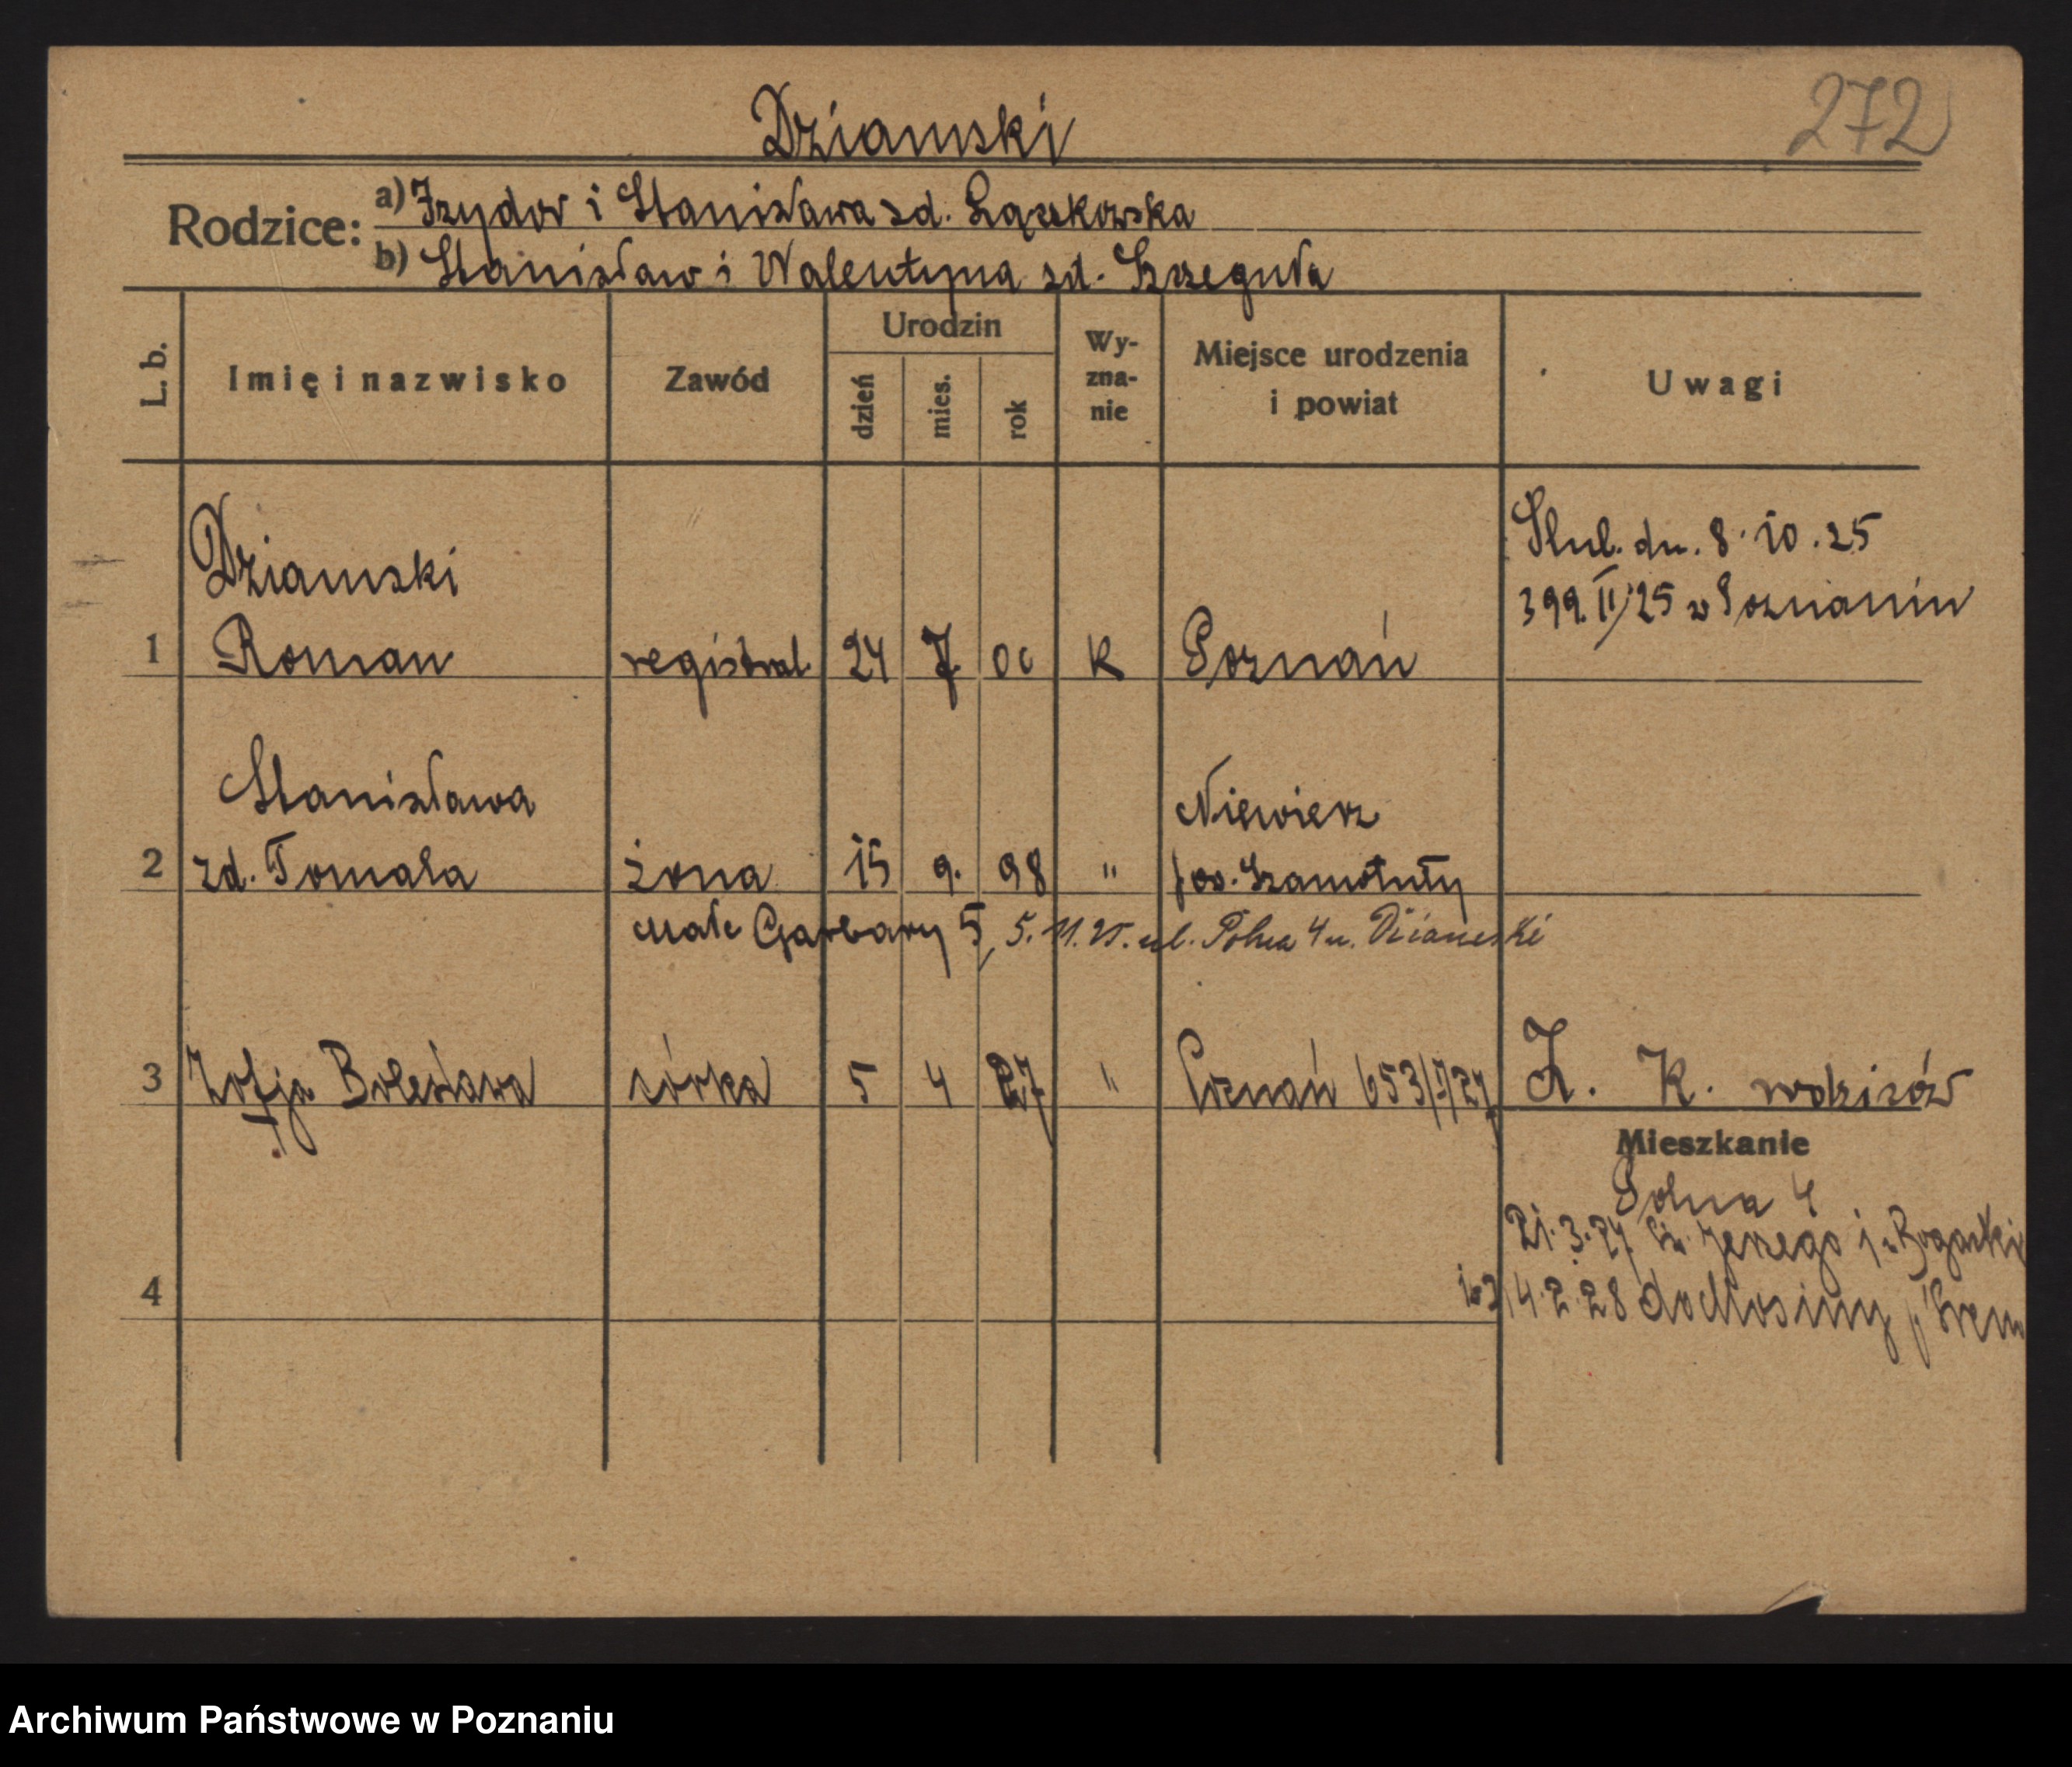 Dziamski
272
Rodzice:
a) Izydor i Stanisława zd. Łączkowska
b) Stanisław i Walentyna zd. Szreguła
L. b.
Imię i nazwisko
Zawód
Urodzin
dzień
mies.
rok
Wy-
zna-
nie
Miejsce urodzenia
i powiat
Uwagi
Ślub. dn. 8.10.25
399.II/25 w Poznaniu
Dziamski
1 Roman registrat. 24 7 00 K Poznań
Stanisława
Niewierz
2 zd. Tomala żona 15 9. 98 " pow. Szamotuły
Małe Garbary 5, 5.11.25. ul. Polna 4 u. Dziamski
3 Zofja Bolesława córka 5 4 27 " Poznań 653/I/27 Z. K. rodziców
Mieszkanie
Polna 4
21.3.27. Św. Jerzego
4
14.2.28 do
Archiwum Państwowe w Poznaniu